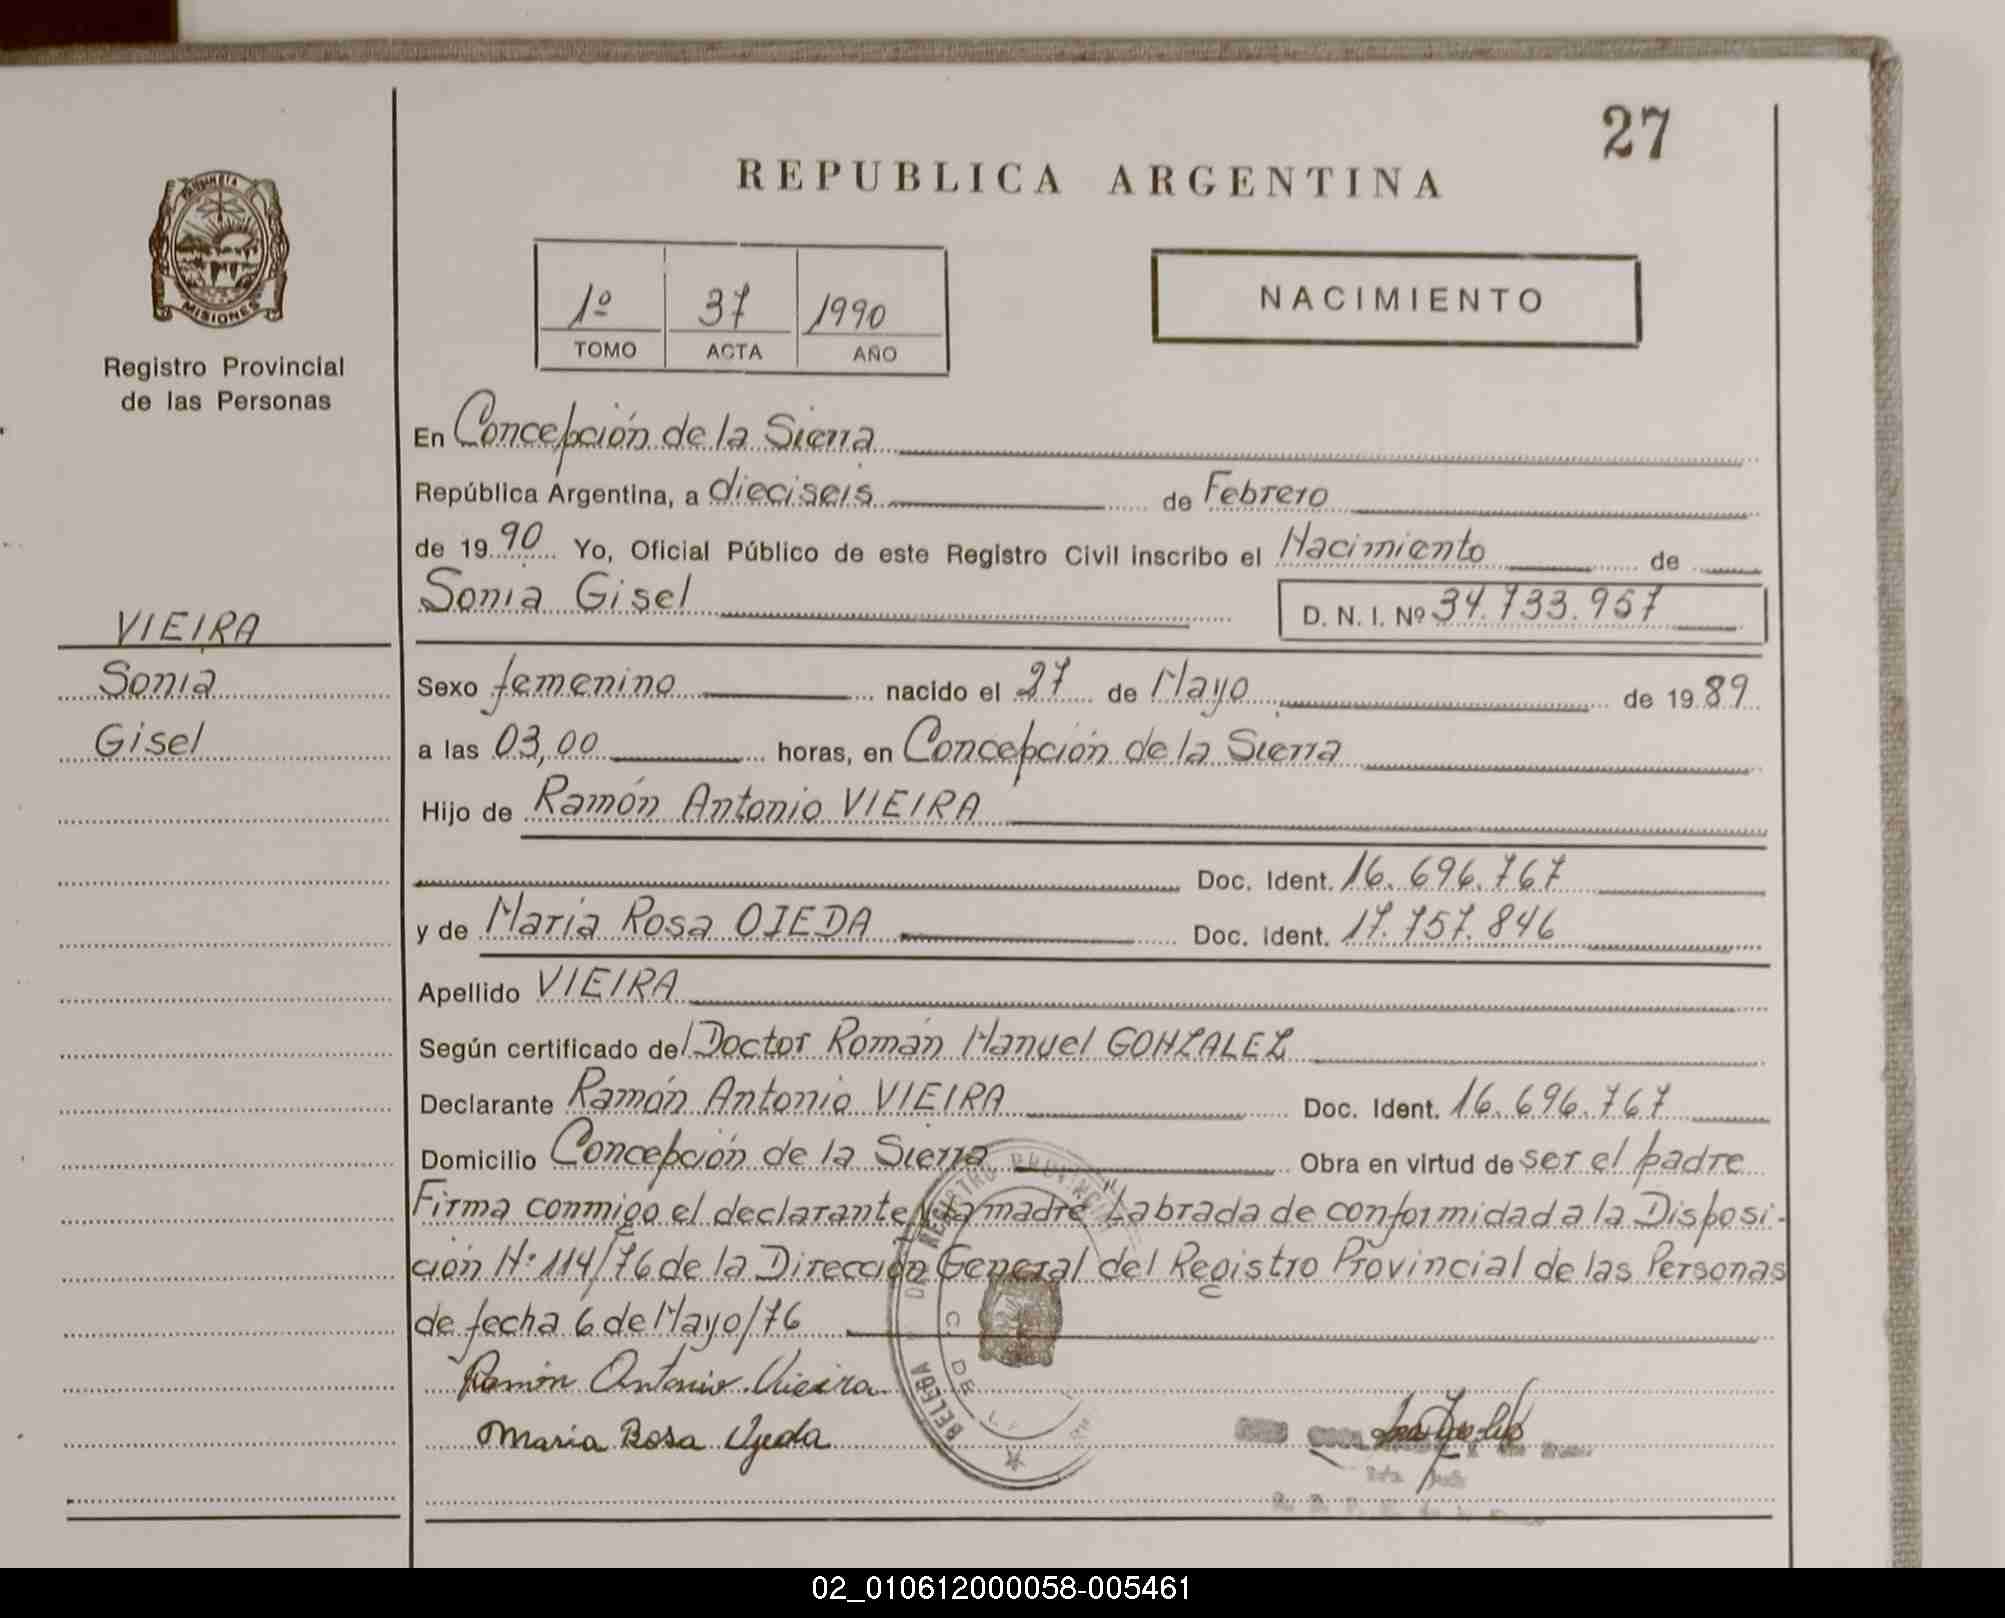 27
REPUBLICA ARGENTINA
PROVINCIA
MISIONES
Registro Provincial
de las Personas
1º 37 1990
TOMO ACTA AÑO
NACIMIENTO
VIEIRA
Sonia
Gisel
En Concepción de la Sierra
República Argentina, a dieciseis de Febrero
de 19 90 Yo, Oficial Público de este Registro Civil inscribo el Nacimiento de
Sonia Gisel D. N. I. Nº 34.733.957
Sexo femenino nacido el 27 de Mayo de 19 89
a las 03,00 horas, en Concepción de la Sierra
Hijo de Ramón Antonio VIEIRA
Doc. Ident. 16.696.767
y de María Rosa OJEDA Doc. Ident. 17.757.846
Apellido VIEIRA
Según certificado del Doctor Román Manuel GONZALEZ
Declarante Ramón Antonio VIEIRA Doc. Ident. 16.696.767
Domicilio Concepción de la Sierra Obra en virtud de ser el padre
Firma conmigo el declarante y la madre "Labrada de conformidad a la Disposi-
ción Nº 114/76 de la Dirección General del Registro Provincial de las Personas
de fecha 6 de Mayo/76
Ramón Antonio Vieira
Maria Rosa Ojeda
REGISTRO PROVINCIAL
02_010612000058-005461